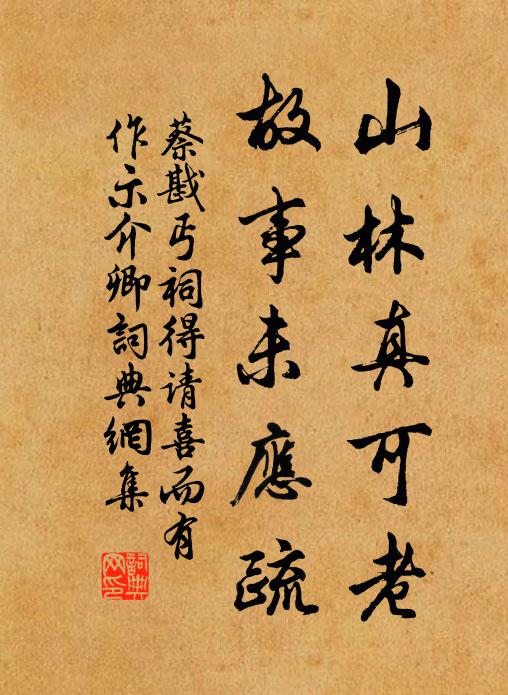 山林真可老
故事未應疏
蔡戡丐祠得请喜而有
作示介卿詞典網集
詞典
网印